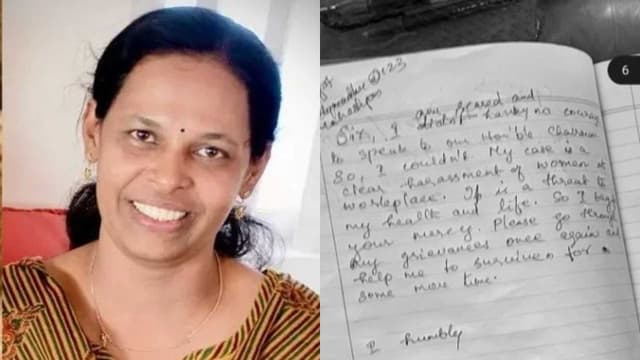 6
Sir, I am scared and
having no courage
to speak to our Hon'ble Chairman
So, I couldn't. My case is a
clear harassment of women at
workplace. It is a threat to
my health and life. So I beg
your mercy. Please go through
my grievances once again and
help me to survive for
some more time.
I humbly